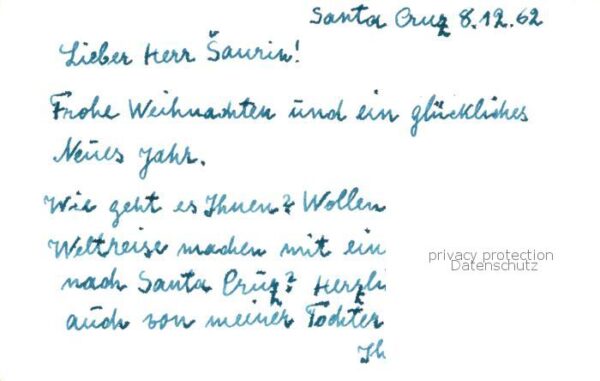 Santa Cruz 8.12.62
Lieber Herr Šaurin!
Frohe Weihnachten und ein glückliches
Neues Jahr.
Wie geht es Ihnen? Wollen
Weltreise machen mit ein
privacy protection
Datenschutz
nach Santa Cruz? Herzli
auch von meiner Tochter
Ih